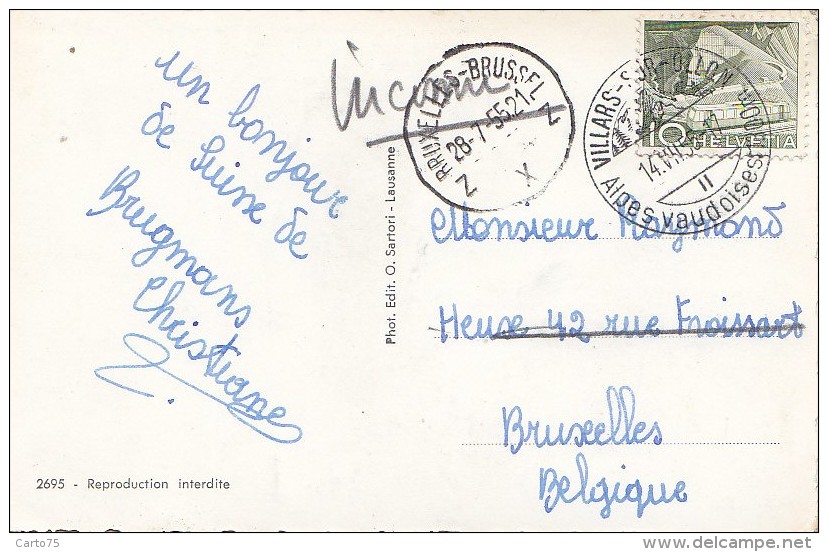 un bonjour
de Suisse de
Brugmans
Christiane
Inconnu
BRUXELLES-BRUSSEL
28-7-55.21
Z X Z
VILLARS-SUR-OLLON
14.VII.55
II
Alpes vaudoises
10 HELVETIA
Monsieur Raymond
Heuse 42 rue Froissart
Bruxelles
Belgique
Phot. Edit. O. Sartori - Lausanne
2695 - Reproduction interdite
Carto75
delcampe.net